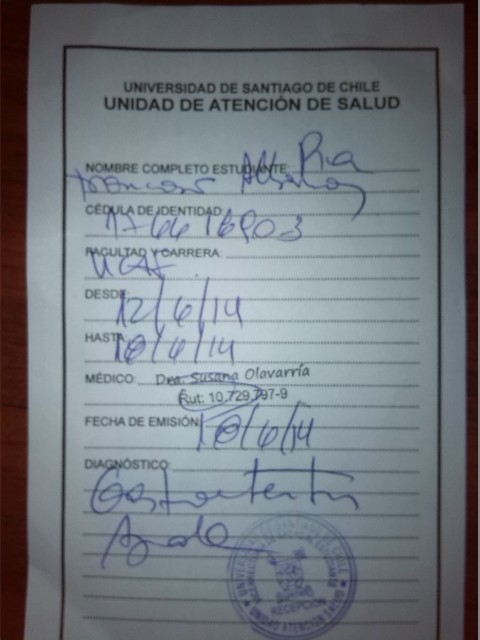 UNIVERSIDAD DE SANTIAGO DE CHILE
UNIDAD DE ATENCIÓN DE SALUD
NOMBRE COMPLETO ESTUDIANTE:
CÉDULA DE IDENTIDAD
FACULTAD Y CARRERA:
DESDE: 12/6/14
HASTA: 18/6/14
MÉDICO: Dra. Susana Olavarría
Rut: 10.729.797-9
FECHA DE EMISIÓN 18/6/14
DIAGNÓSTICO:
Gastroenteritis
Aguda
RECEPCION
UNIDAD ATENCION SALUD